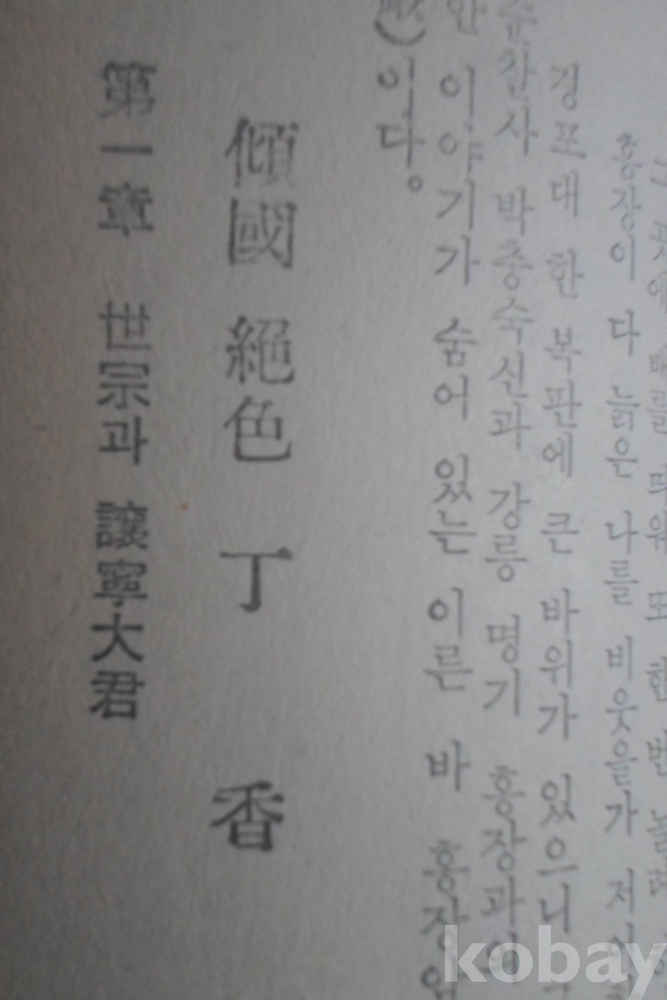 그 곳에 배를 띄워 또 한 번 놀려
홍장이 다 늙은 나를 비웃을가 저어
경포대 한 복판에 큰 바위가 있으니
순찰사 박충숙신과 강릉 명기 홍장과의
이야기가 숨어 있는 이른 바 홍장암
이다。
傾國 絕色 丁 香
第一章 世宗과 讓寧大君
kobay